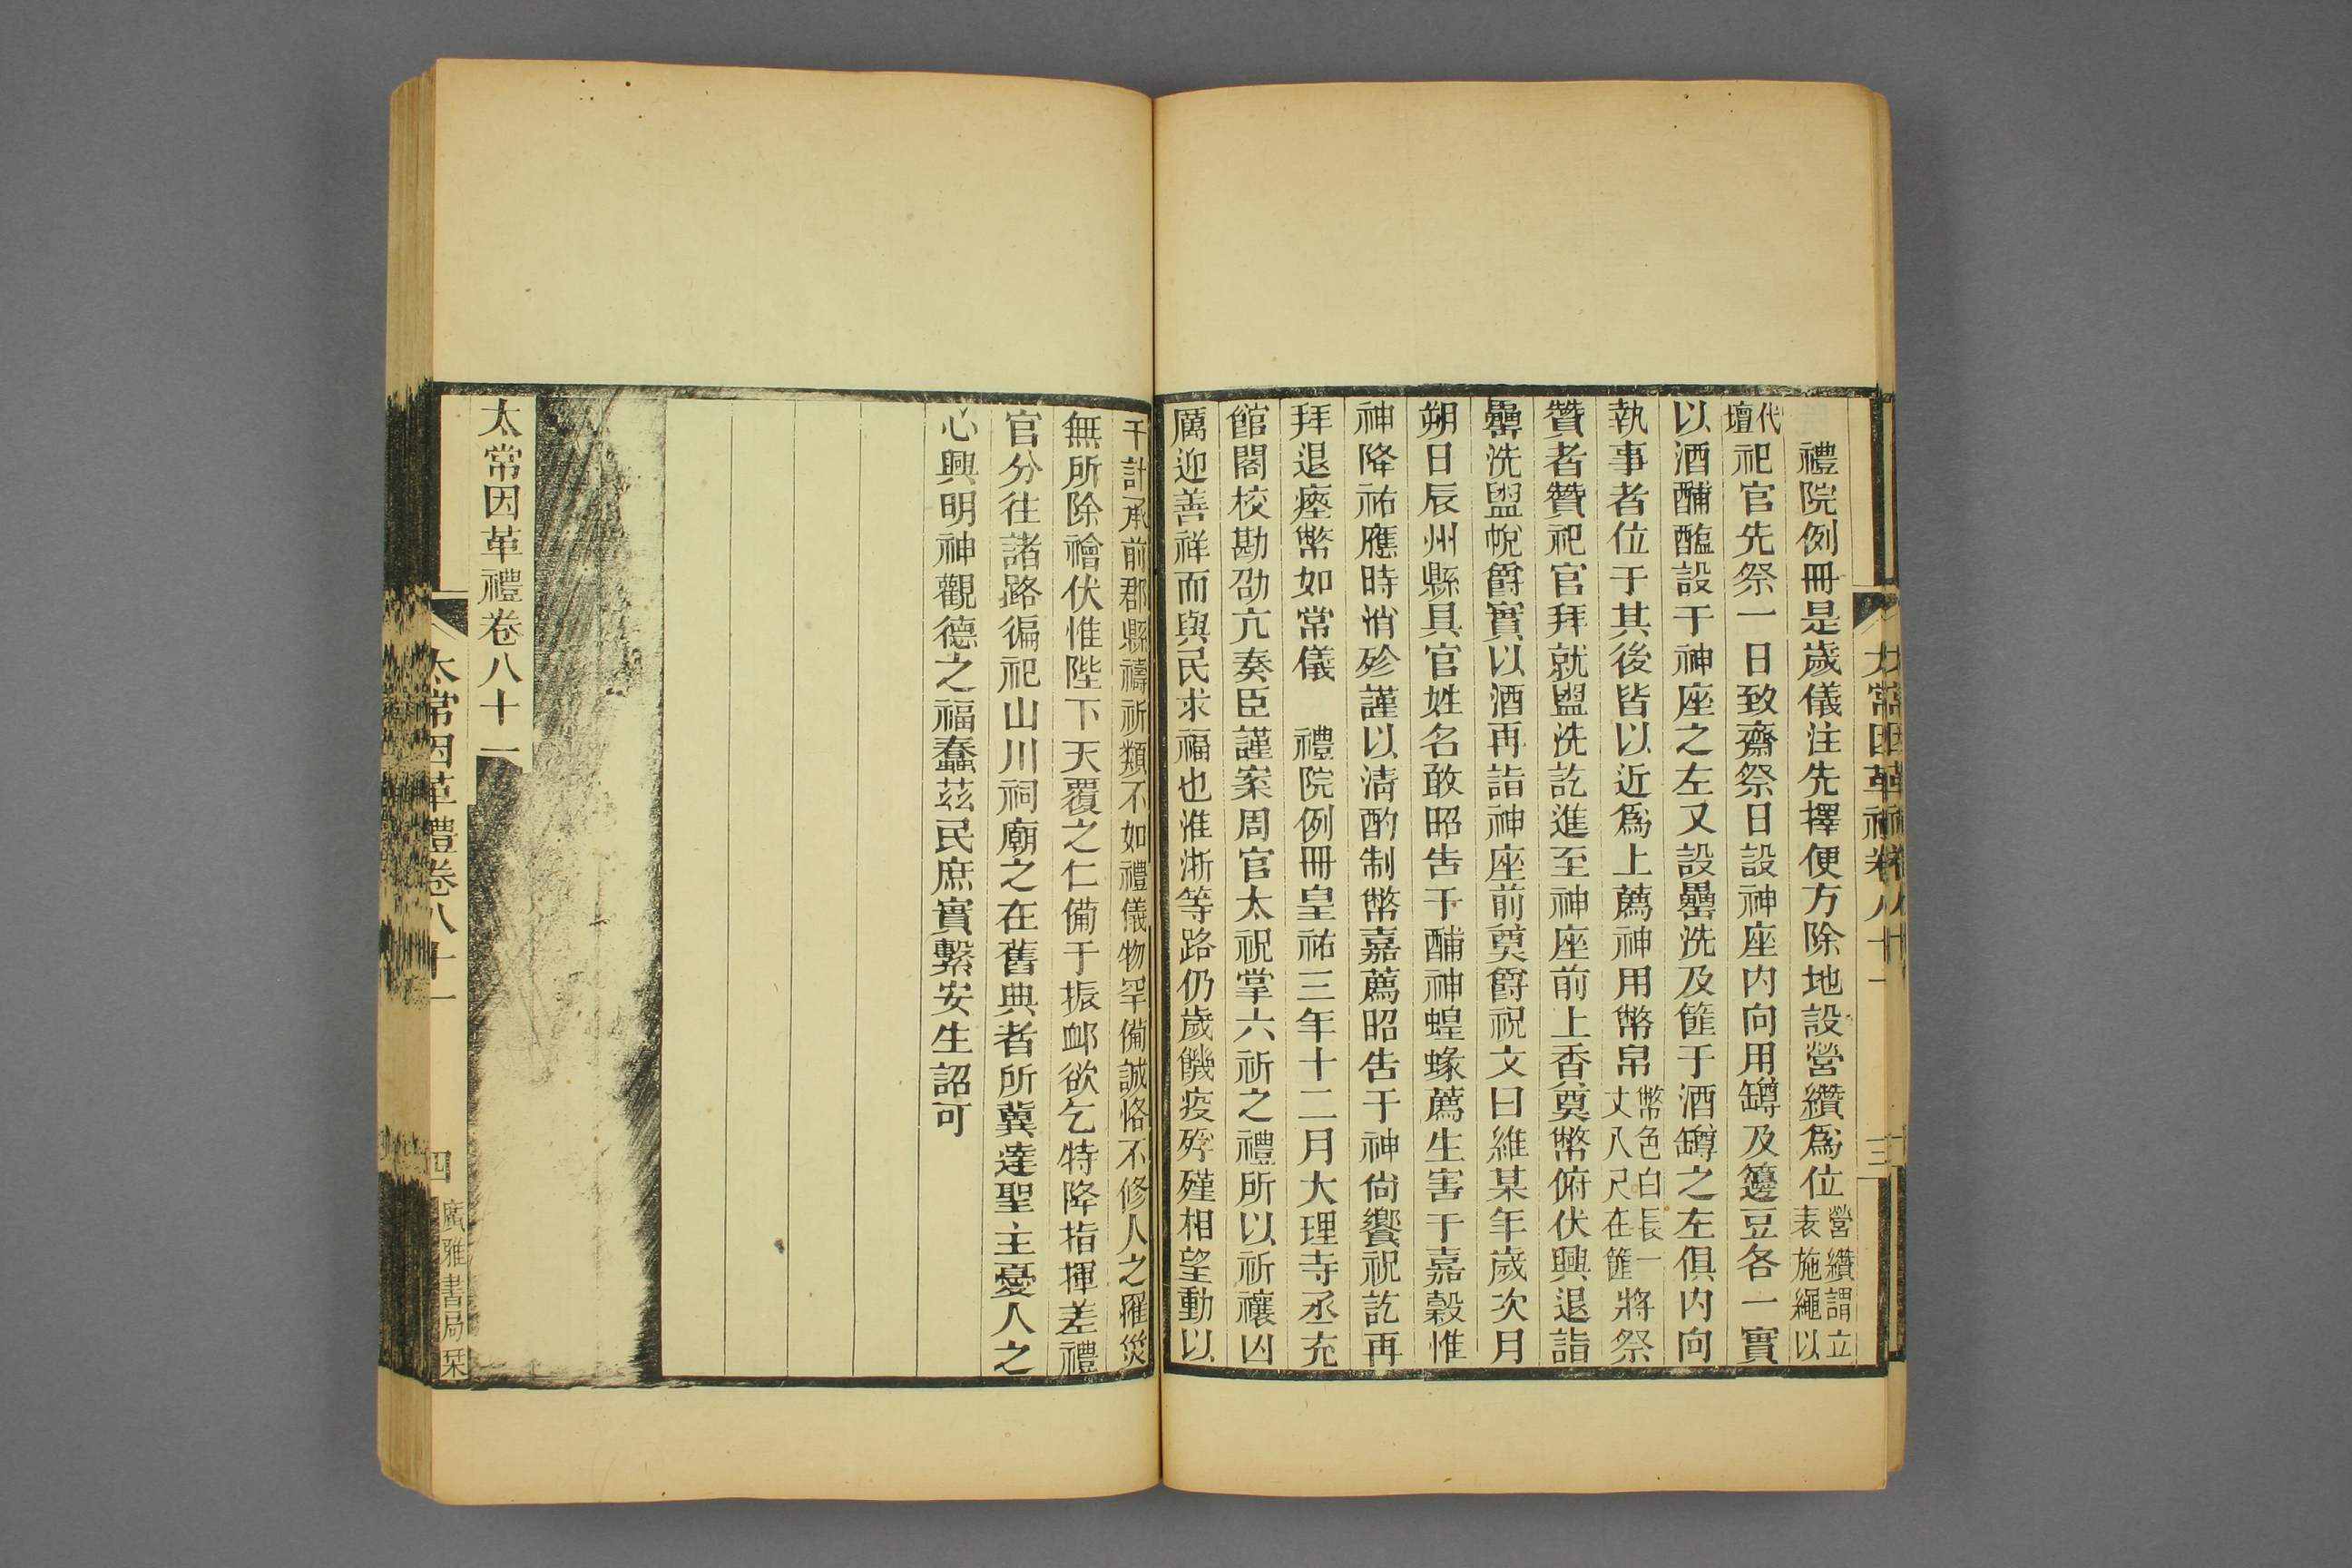 太常因革禮卷八十一
三
禮院例冊是歲儀注先擇便方除地設營纘爲位營纘謂立表施繩以
代壇祀官先祭一日致齋祭日設神座內向用罇及籩豆各一實
以酒酺醢設于神座之左又設罍洗及篚于酒罇之左俱内向
執事者位于其後皆以近爲上薦神用幣帛幣色白長一丈八尺在篚將祭
贊者贊祀官拜就盥洗訖進至神座前上香奠幣俯伏興退詣
罍洗盥帨爵實以酒再詣神座前奠爵祝文曰維某年歲次月
朔日辰州縣具官姓名敢昭告于酺神蝗蝝薦生害于嘉穀惟
神降祐應時消殄謹以清酌制幣嘉薦昭告于神尙饗祝訖再
拜退瘞幣如常儀　禮院例冊皇祐三年十二月大理寺丞充
館閣校勘劭亢奏臣謹案周官太祝掌六祈之禮所以祈禳凶
厲迎善祥而與民求福也淮浙等路仍歲饑疫殍殣相望動以
千計承前郡縣禱祈類不如禮儀物罕備誠恪不修人之罹災
無所除禬伏惟陛下天覆之仁備于振卹欲乞特降指揮差禮
官分往諸路徧祀山川祠廟之在舊典者所冀達聖主憂人之
心興明神觀德之福蠢茲民庶實繫安生詔可
太常因革禮卷八十一
太常因革禮卷八十一
四
廣雅書局栞